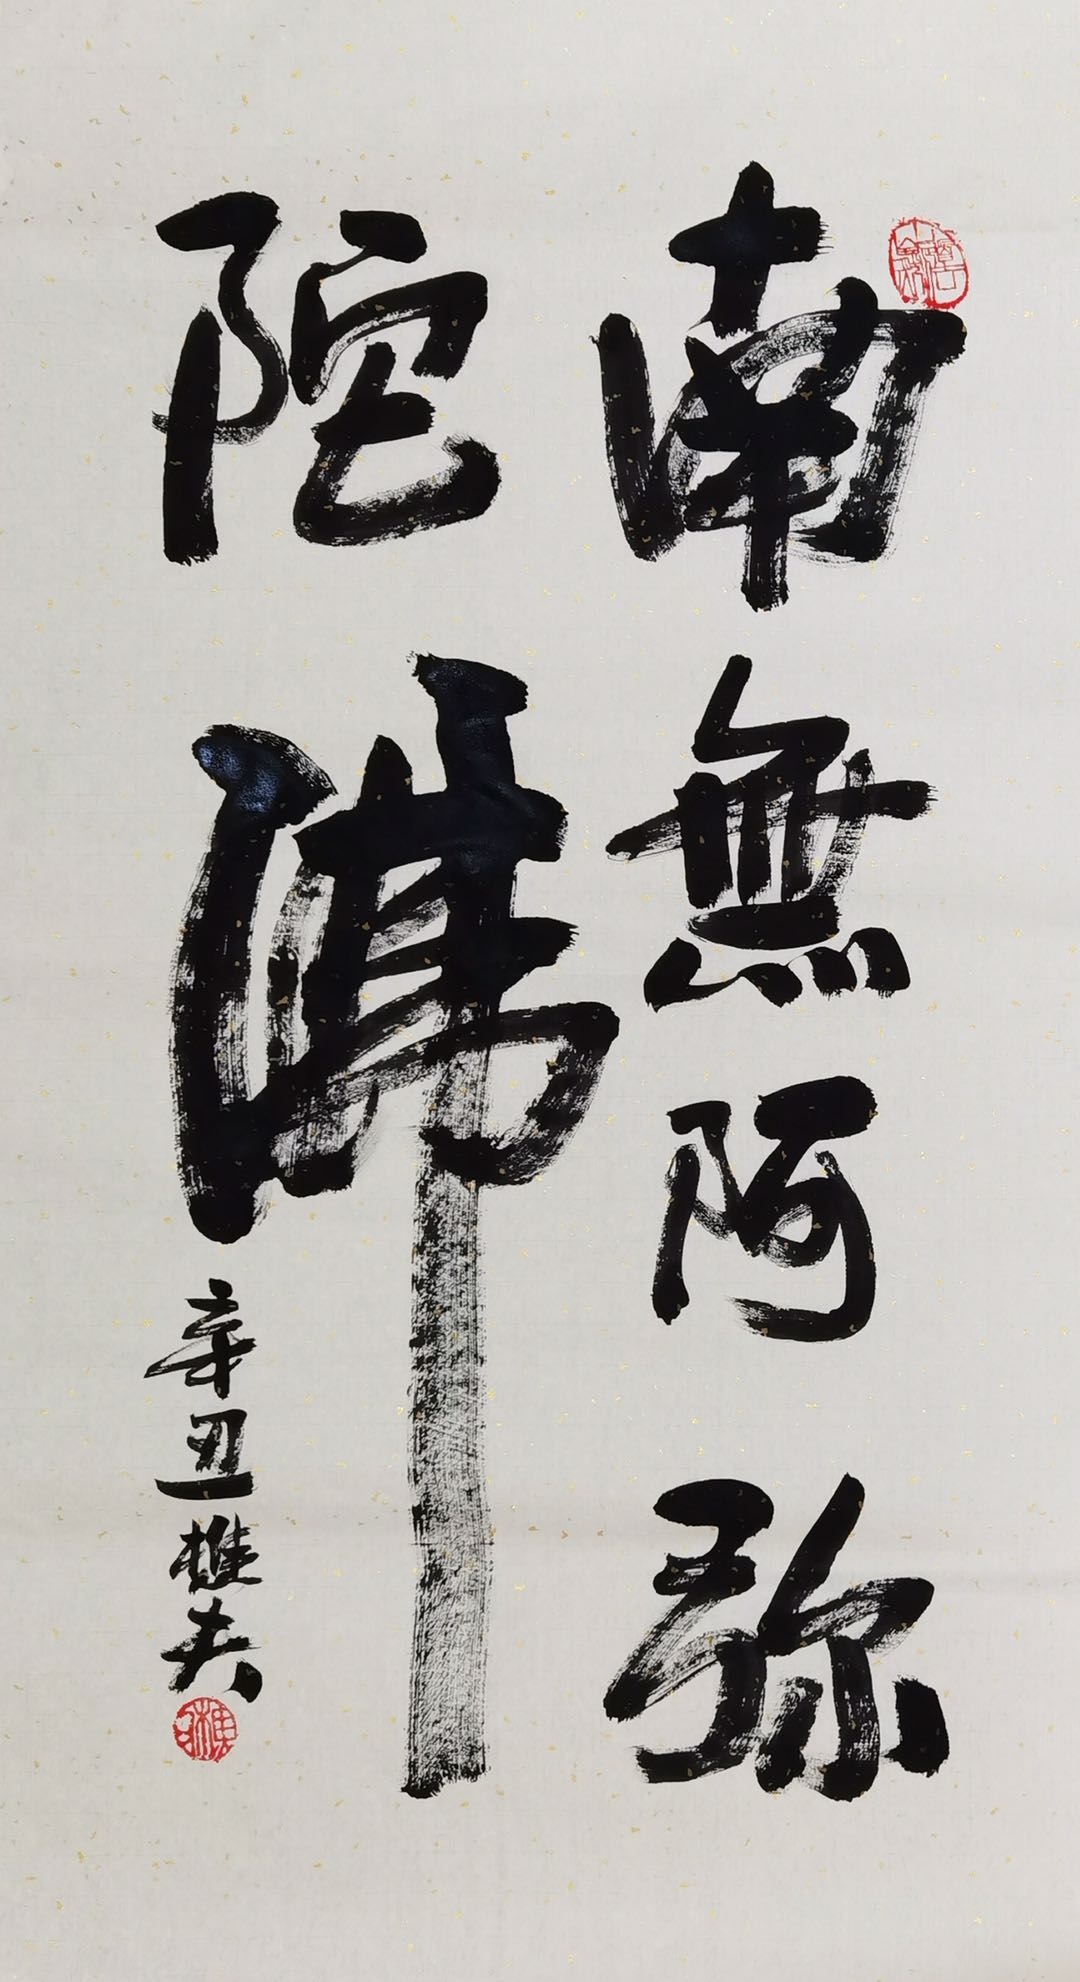 南無阿弥
陀佛
辛丑樵夫